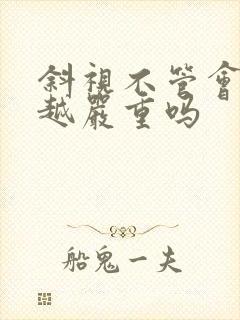 斜視不管會
越嚴重吗
船鬼一夫